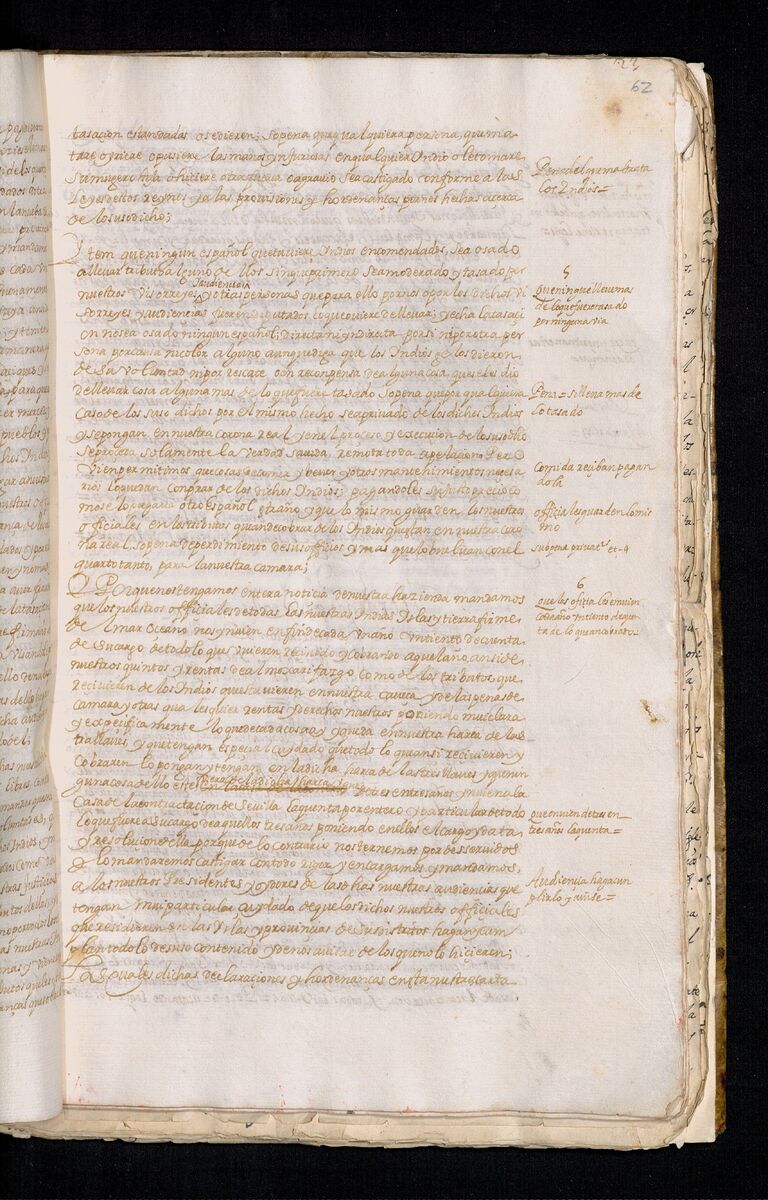 62
tasaçion estan dadas o se dieren; so pena que qualquiera persona, que ma
tare o hiriere o pusiere las manos injuriosas en qualquier Indio o le tomare
su muger o hija o hiciere otra fuerça o agravio sea castigado conforme a las
leyes destos reynos y a las provisiones y hordenanças por nos hechas acerca
de lo susodicho;
Pena del que maltrata
los Indios=
Yten que ningun español que tuviere Indios encomendados, sea osado
a llevar tributo alguno dellos sin que primero sea moderado y tasado por
nuestros Visorreyes y audiencias y otras personas que para ello por nos o por los dichos vi
sorreyes y audiencias fueren diputados lo que oviere de llevar; y echa la tasaçi
on no sea osado ningun español, directa ni yndirecta por si ni por otra per
sona por causa ni color alguno aunque diga que los Indios se lo dieron
de su voluntad ni por rescate o en recompensa de alguna cosa, que se les dio
de llevar cosa alguna mas de lo que fuere tasado so pena que por qualquier
caso de los suso dichos por el mismo hecho sea privado de los dichos Indios
y se pongan en nuestra corona real y en el proceso y execucion de lo susodicho
se proceda solamente la verdad savida, remota toda apelaçion Pero
bien permitimos que cosas de comer y bever y otros mantenimientos necesa
rios lo puedan conprar de los dichos Indios; pagandoles su justo precio co
mo se lo pagaria otro Español estraño y que lo mismo guarden los nuestros
officiales en los tributos que an de cobrar de los Indios que estan en nuestra coro
na real, so pena de perdimiento de sus officios y mas que lo buelvan con el
quarto tanto, para la nuestra camara;
5
que ninguno lleve mas
de lo que fuere tasado
por ninguna via
Pena= si lleva mas de
lo tasado
Comida reciban pagan
dola
officiales guarden lo mis
mo
Porque nos tengamos entera noticia de nuestra hazienda mandamos
que los nuestros officiales de todas las nuestras Indias Yslas y tierra firme
del mar Oceano nos ynvien en fin de cada un año un tiento de cuenta
de su cargo de todo lo que uvieren recivido y cobrado aquel año, ansi de
nuestros quintos y rentas de almoxarifazgo como de los tributos, que
recivieren de los Indios que estuvieren en nuestra caveça y de las penas de
camara y otras qualesquier rentas y derechos nuestros poniendo mui clara
y expecificamente lo que de cada cosa ay y queda en nuestra harca de las
tres llaves, y que tengan especial cuydado que todo lo que ansi recivieren y
cobraren lo pongan y tengan en la dicha harca de las tres llaves y que nin
guna cosa dello este fuera de la dicha harca y que de tres en tres años ynvien a la
Casa de la contrataçion de Sevilla la quenta por entero y particular de todo
lo que fuere a su cargo de aquellos tres años poniendo en ellos el cargo y data
y resolucion della porque de lo contrario nos ternemos por deservidos
y lo mandaremos castigar con todo rigor y encargamos y mandamos,
a los nuestros Presidentes y oydores de las dichas nuestras audiencias que
tengan mui particular cuydado de que los dichos nuestros officiales
que residieren en las Yslas y provincias de sus distritos hagan y cum
plan todo lo de suso contenido y de nos avisar de los que no lo hicieren;
6
que los oficiales envien
cada año un tanto de quen
ta de lo que an cobrado=
que envien de tres en
tres años la quenta=
Audiencia hagan cun
plirlo y avise=
Las quales dichas declaraciones y hordenanças en esta nuestra carta